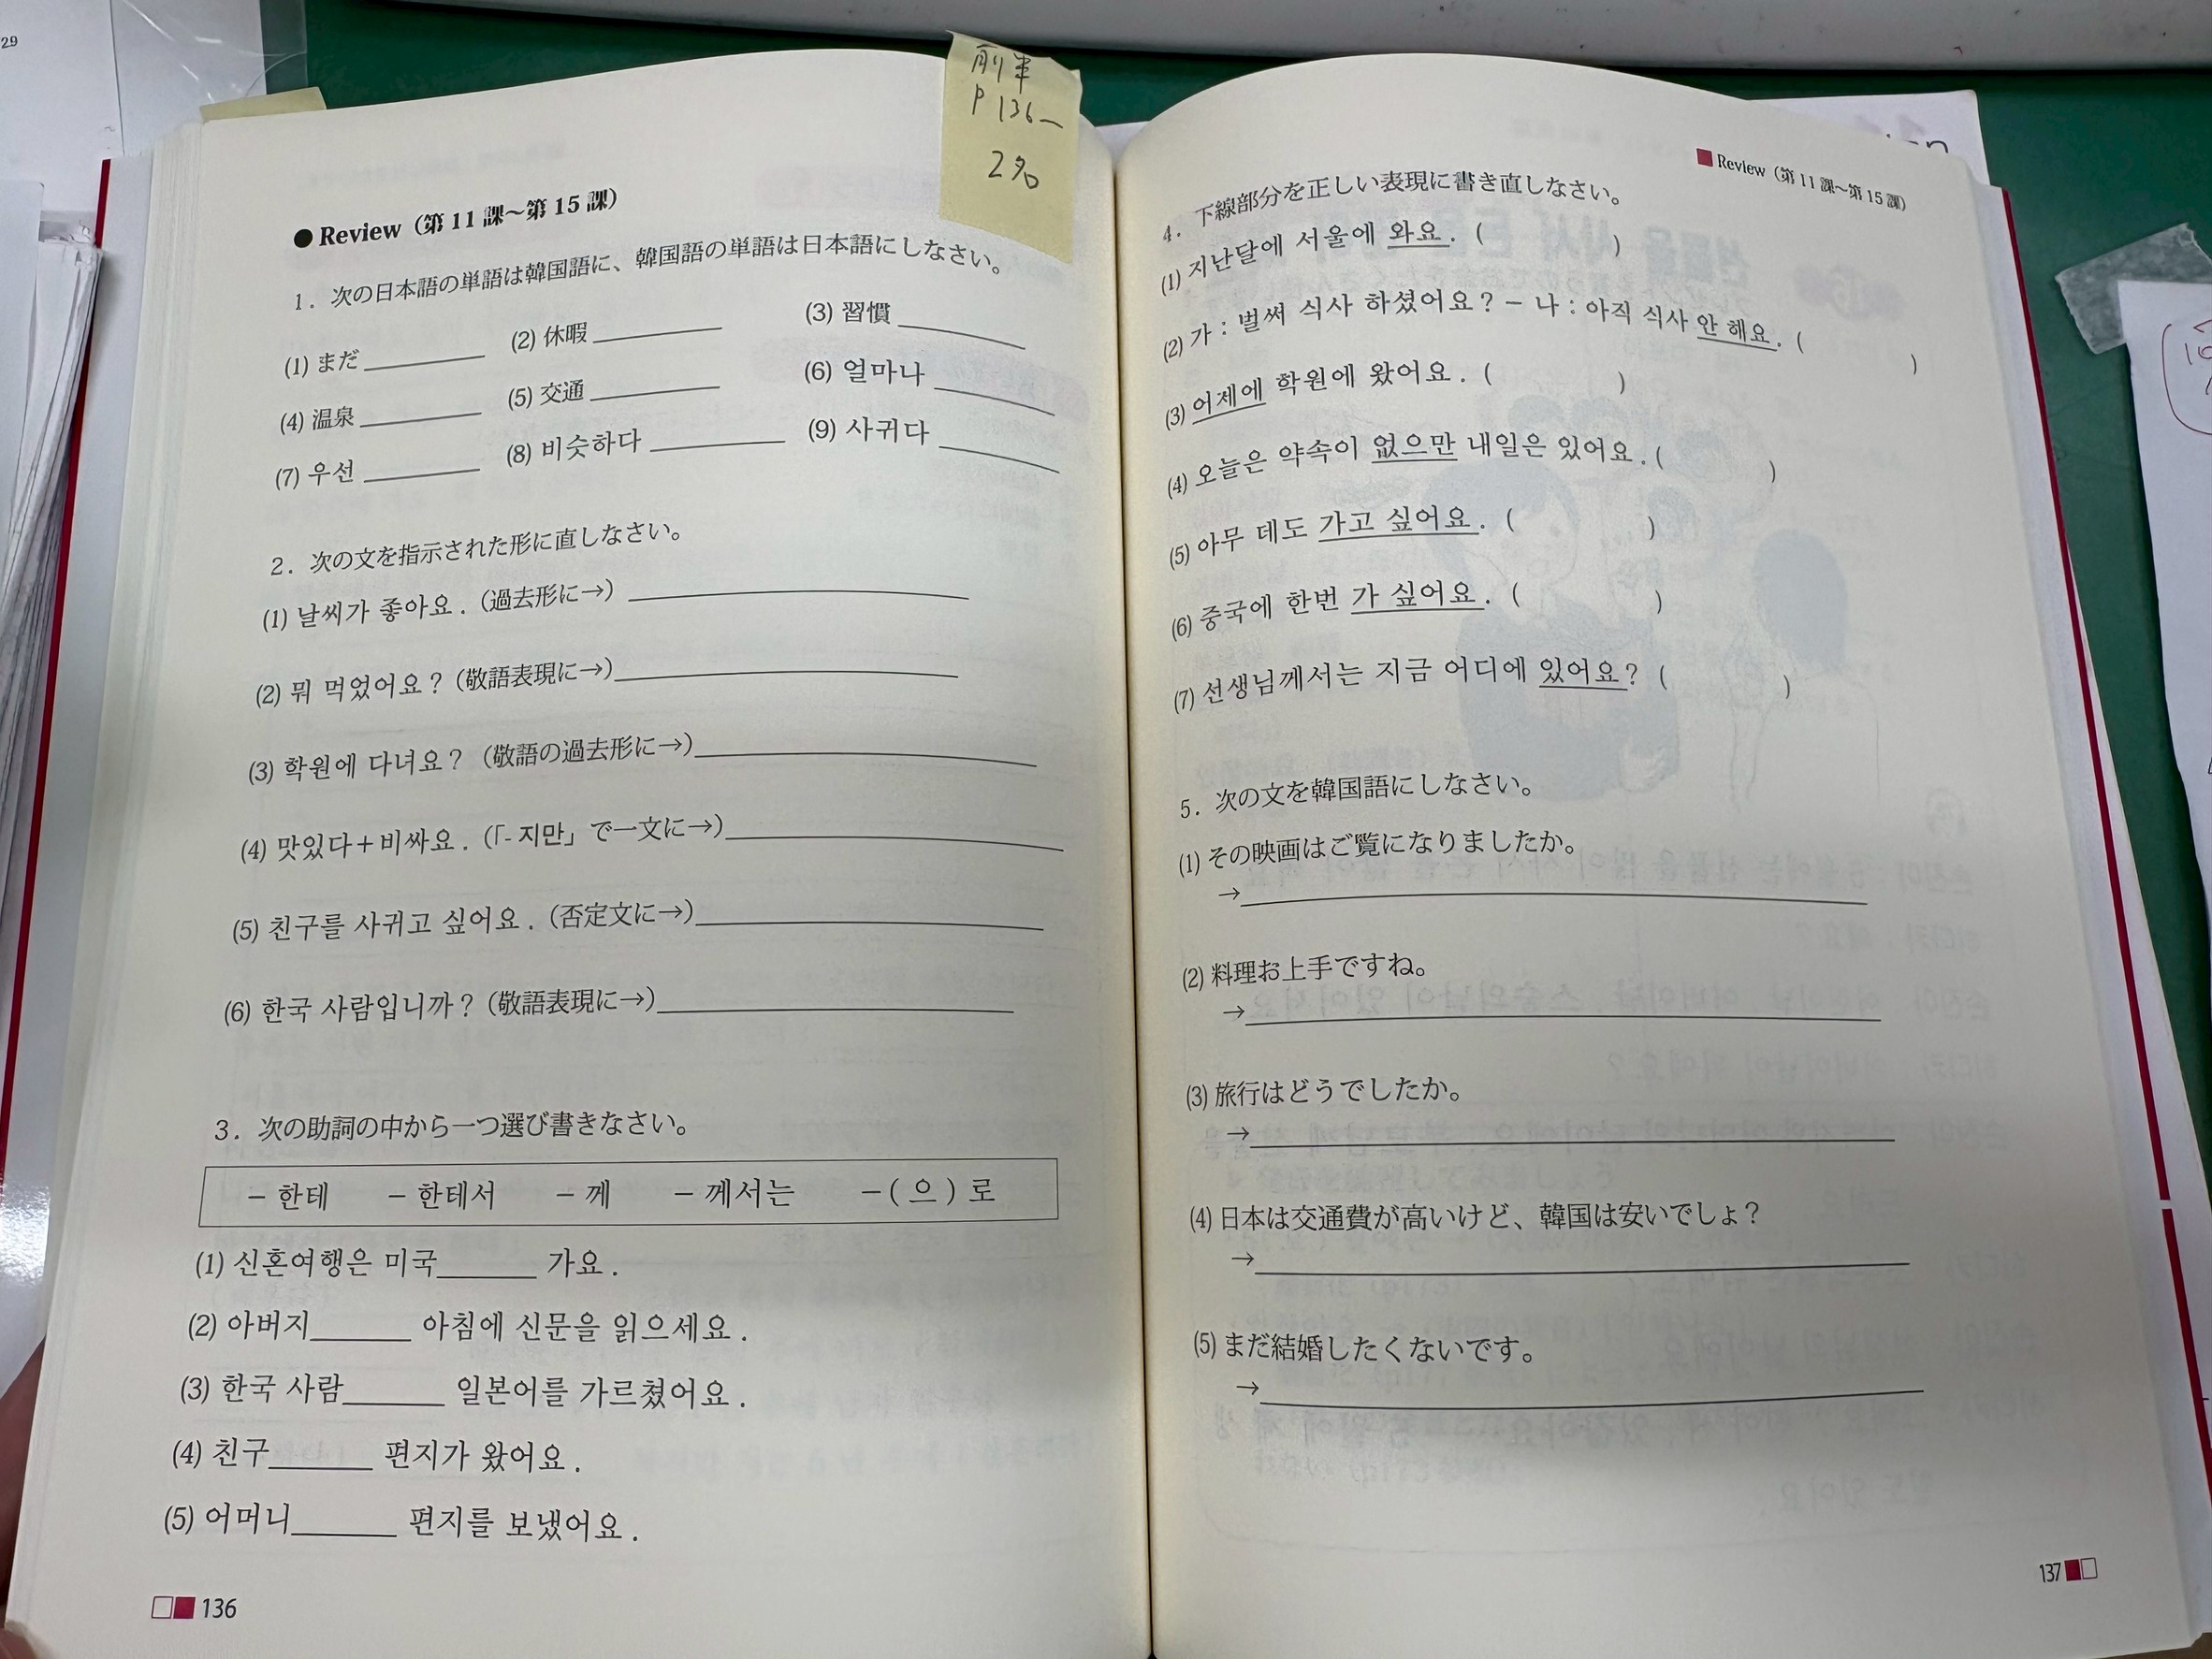 29
前半
P136〜
2名
● Review（第 11 課〜第 15 課）
1．次の日本語の単語は韓国語に、韓国語の単語は日本語にしなさい。
(1) まだ (2) 休暇 (3) 習慣
(4) 温泉 (5) 交通 (6) 얼마나
(7) 우선 (8) 비슷하다 (9) 사귀다
2．次の文を指示された形に直しなさい。
(1) 날씨가 좋아요．（過去形に→）
(2) 뭐 먹었어요？（敬語表現に→）
(3) 학원에 다녀요？（敬語の過去形に→）
(4) 맛있다＋비싸요．（「- 지만」で一文に→）
(5) 친구를 사귀고 싶어요．（否定文に→）
(6) 한국 사람입니까？（敬語表現に→）
3．次の助詞の中から一つ選び書きなさい。
－ 한테 － 한테서 － 께 － 께서는 －( 으 ) 로
(1) 신혼여행은 미국______ 가요．
(2) 아버지______ 아침에 신문을 읽으세요．
(3) 한국 사람______ 일본어를 가르쳤어요．
(4) 친구______ 편지가 왔어요．
(5) 어머니______ 편지를 보냈어요．
136
Review（第 11 課〜第 15 課）
4．下線部分を正しい表現に書き直しなさい。
(1) 지난달에 서울에 와요．( )
(2) 가：벌써 식사 하셨어요？－ 나：아직 식사 안 해요．( )
(3) 어제에 학원에 왔어요．( )
(4) 오늘은 약속이 없으만 내일은 있어요．( )
(5) 아무 데도 가고 싶어요．( )
(6) 중국에 한번 가 싶어요．( )
(7) 선생님께서는 지금 어디에 있어요？( )
5．次の文を韓国語にしなさい。
(1) その映画はご覧になりましたか。
→
(2) 料理お上手ですね。
→
(3) 旅行はどうでしたか。
→
(4) 日本は交通費が高いけど、韓国は安いでしょ？
→
(5) まだ結婚したくないです。
→
137